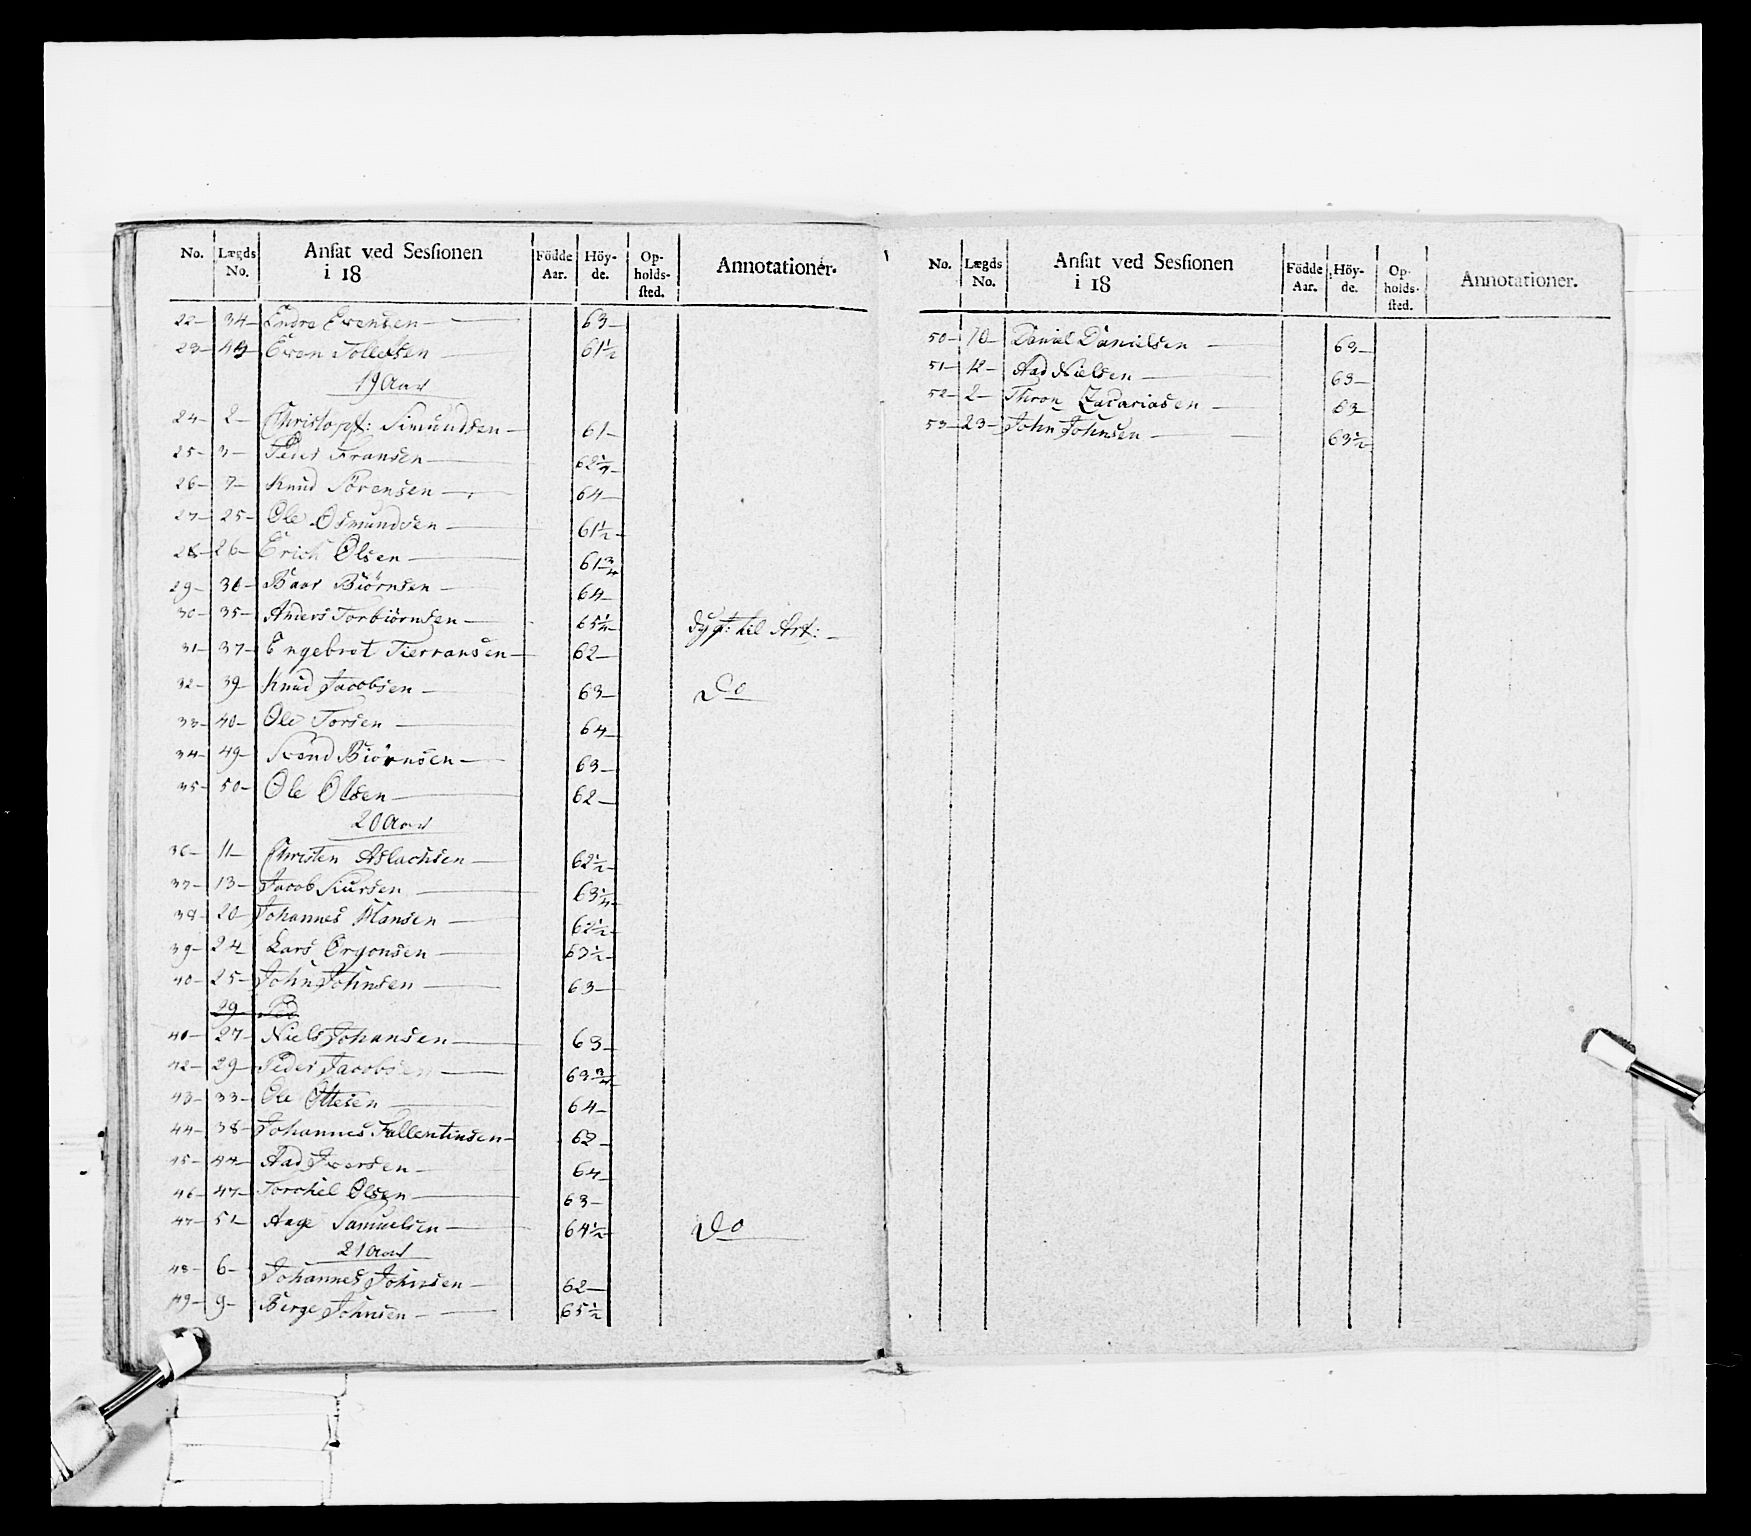 No. Lægds No. Ansat ved Sessionen i 18 Födde Aar. Höyde. Opholdssted. Annotationer.
22 34 Endre Evensen 63
23 49 Even Tollefsen 61 1/2
19 Aar
24 2 Christoph: Simundsen 61
25 3 Peder Fransen 62 1/4
26 7 Knud Sörensen 64
27 25 Ole Osmundsen 61 1/2
28 26 Erich Olsen 61 3/4
29 30 Baar Biörnsen 64
30 35 Anders Torbiörnsen 65 1/4 dygt: til Art:
31 37 Engebrot Tierransen 62
32 39 Knud Jacobsen 63 Do
33 40 Ole Torsen 64
34 49 Svend Biörnsen 63
35 50 Ole Olsen 62
20 Aar
36 11 Christen Aslachsen 62 1/2
37 13 Jacob Siursen 63 1/4
38 20 Johannes Hansen 62 1/2
39 24 Lars Örgonsen 63 1/2
40 25 John Johnsen 63
29 Ped
41 27 Niels Johansen 63
42 29 Peder Jacobsen 63 3/4
43 33 Ole Ottesen 64
44 38 Johannes Fallentinsen 62
45 44 Aad Iversen 64
46 47 Torchel Olsen 63
47 51 Aage Samuelsen 64 1/2 Do
21 Aar
48 6 Johannes Johnsen 62
49 9 Berge Johnsen 65 1/2
No. Lægds No. Ansat ved Sessionen i 18 Födde Aar. Höyde. Opholdssted. Annotationer.
50 10 Daniel Danielsen 63
51 12 Aad Nielsen 63
52 2 Thron Zacariasen 63
53 23 John Johnsen 63 1/2